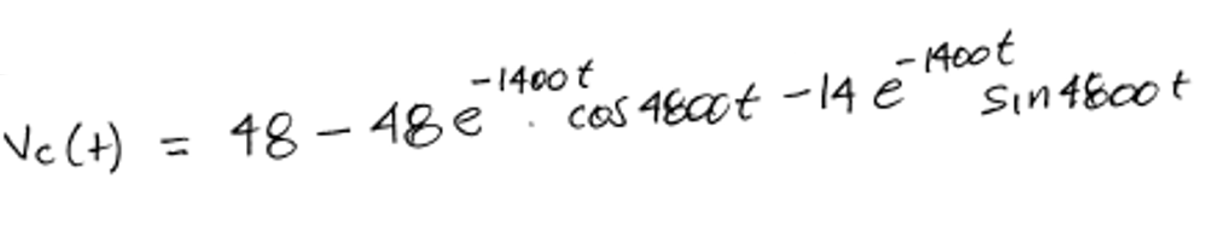 Vc(t) = 48 - 48e^{-1400t} . cos 4800t - 14e^{-1400t} sin 4800t